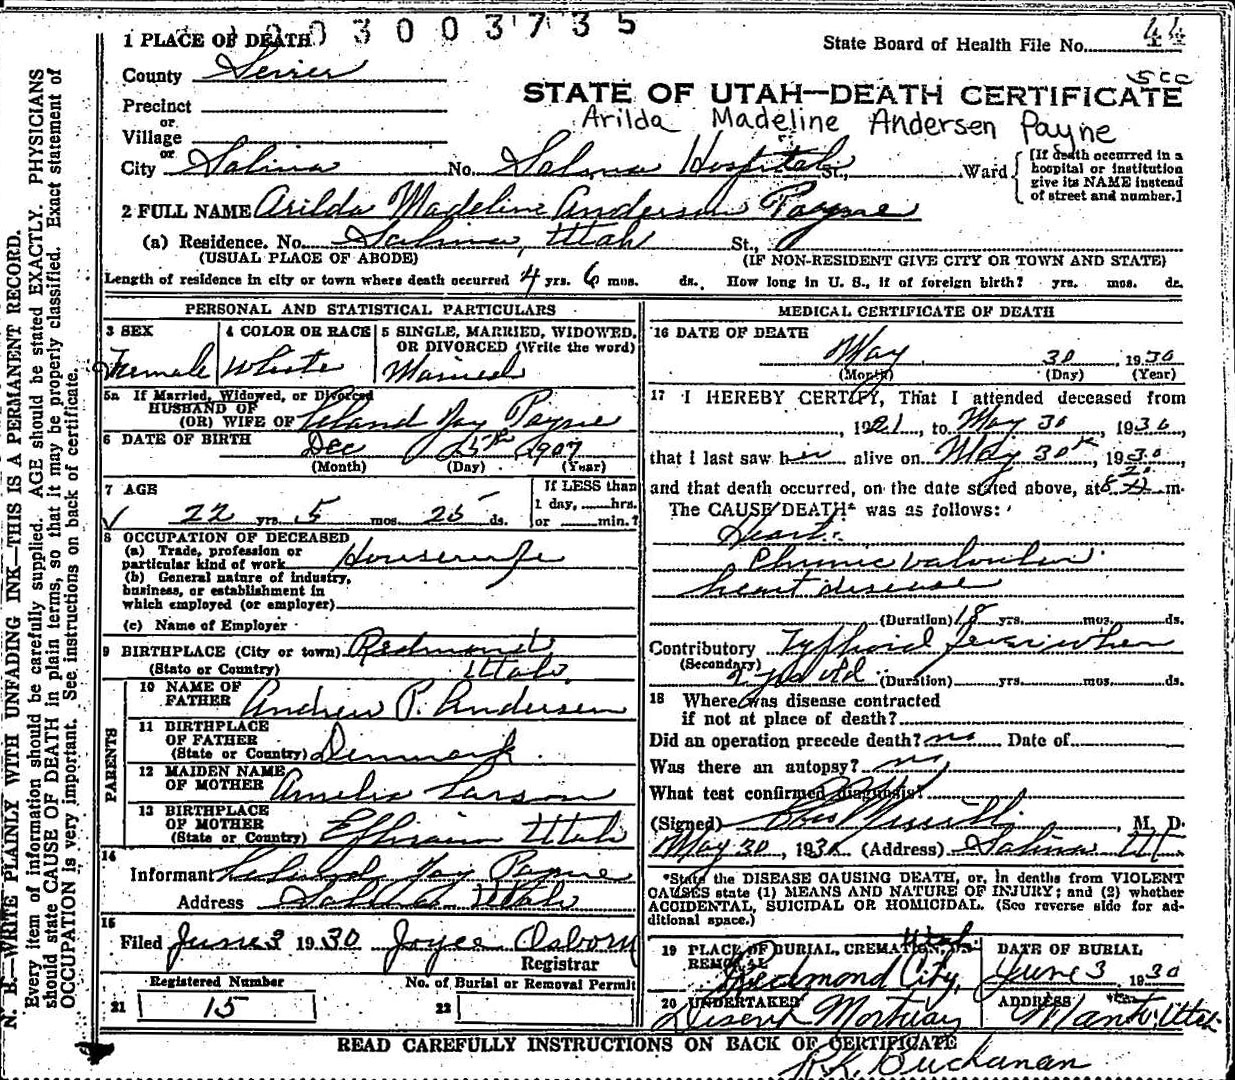 3 0 0 3 7 3 5
1 PLACE OF DEATH
State Board of Health File No. 44
County Sevier
Precinct
or
Village
or
City Salina No. Salina Hospital St., Ward
[If death occurred in a hospital or institution give its NAME instead of street and number.]
STATE OF UTAH—DEATH CERTIFICATE
Arilda Madeline Andersen Payne
2 FULL NAME Arilda Madeline Anderson Payne
(a) Residence. No. Salina, Utah St.,
(USUAL PLACE OF ABODE) (IF NON-RESIDENT GIVE CITY OR TOWN AND STATE)
Length of residence in city or town where death occurred 4 yrs. 6 mos. ds. How long in U. S., if of foreign birth? yrs. mos. ds.
PERSONAL AND STATISTICAL PARTICULARS
3 SEX
Female
4 COLOR OR RACE
White
5 SINGLE, MARRIED, WIDOWED,
OR DIVORCED (Write the word)
Married
5a If Married, Widowed, or Divorced
HUSBAND OF
(OR) WIFE OF Leland Jay Payne
6 DATE OF BIRTH Dec 5th 1907
(Month) (Day) (Year)
7 AGE
22 yrs. 5 mos. 25 ds.
If LESS than
1 day, hrs.
or min.?
8 OCCUPATION OF DECEASED
(a) Trade, profession or
particular kind of work Housewife
(b) General nature of industry,
business, or establishment in
which employed (or employer)
(c) Name of Employer
9 BIRTHPLACE (City or town) Redmond
(State or Country) Utah.
PARENTS
10 NAME OF
FATHER Andrew P. Andersen
11 BIRTHPLACE
OF FATHER
(State or Country) Denmark.
12 MAIDEN NAME
OF MOTHER Amelia Larson
13 BIRTHPLACE
OF MOTHER
(State or Country) Ephraim Utah
14
Informant Leland Jay Payne
Address Salina Utah
15
Filed June 3 1930 Joyce Osborn
Registrar
Registered Number
21 15
No. of Burial or Removal Permit
22
MEDICAL CERTIFICATE OF DEATH
16 DATE OF DEATH
May 30 1930
(Month) (Day) (Year)
17 I HEREBY CERTIFY, That I attended deceased from
, 1921, to May 30, 1930,
that I last saw her alive on May 30th, 1930,
and that death occurred, on the date stated above, at 8 20 m.
The CAUSE DEATH* was as follows:
Heart.
Chronic valvular
heart disease
(Duration) 18 yrs. mos. ds.
Contributory Typhoid fever when
(Secondary) yrs old (Duration) yrs. mos. ds.
18 Where was disease contracted
if not at place of death?
Did an operation precede death? no Date of
Was there an autopsy? no
What test confirmed diagnosis?
(Signed) M. D.
May 30, 1930 (Address) Salina Ut.
*State the DISEASE CAUSING DEATH, or, in deaths from VIOLENT
CAUSES state (1) MEANS AND NATURE OF INJURY; and (2) whether
ACCIDENTAL, SUICIDAL OR HOMICIDAL. (See reverse side for ad-
ditional space.)
19 PLACE OF BURIAL, CREMATION, OR
REMOVAL
Redmond City, Utah
DATE OF BURIAL
June 3 1930
20 UNDERTAKER
Deseret Mortuary
ADDRESS
Manti, Utah
READ CAREFULLY INSTRUCTIONS ON BACK OF CERTIFICATE
R.K. Buchanan
N. B.—WRITE PLAINLY WITH UNFADING INK—THIS IS A PERMANENT RECORD.
Every item of information should be carefully supplied. AGE should be stated EXACTLY. PHYSICIANS
should state CAUSE OF DEATH in plain terms, so that it may be properly classified. Exact statement of
OCCUPATION is very important. See instructions on back of certificate.